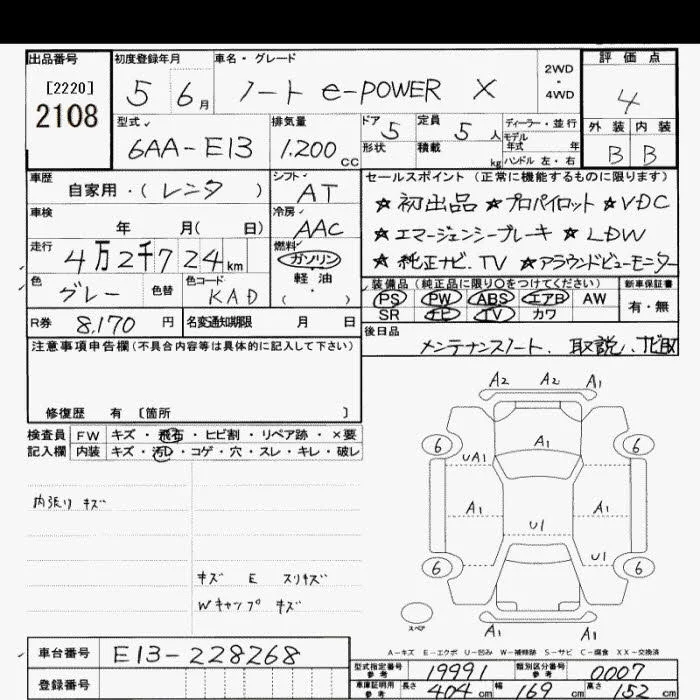 出品番号 初度登録年月 車名・グレード 2WD・4WD 評価点
[2220]
2108 5 6月 ノート e-POWER X 4
型式 排気量 ドア 5 定員 5人 ディーラー・並行 外装 内装
6AA-E13 1.200cc 形状 積載 kg モデル年式 年 B B
ハンドル 左・右
車歴 自家用・(レンタ) シフト AT セールスポイント (正常に機能するものに限ります)
車検 年 月( 日) 冷房 AAC ★初出品 ★プロパイロット ★VDC
走行 4万2千724km 燃料 ガソリン ★エマージェンシーブレーキ ★LDW
色 グレー 色替 色コード KAD 軽油 ( ) ★純正ナビ.TV ★アラウンドビューモニター
装備品 (純正品に限り○をつけてください) 新車保証書
PS PW ABS エアB AW 有・無
SR ナビ TV カワ
R券 8,170円 名変通知期限 月 日 後日品
メンテナンスノート、取説、ナビ取
注意事項申告欄(不具合内容等は具体的に記入して下さい)
修復歴 有 〔箇所 〕
検査員 FW キズ・飛石・ヒビ割・リペア跡・×要
記入欄 内装 キズ・汚れ・コゲ・穴・スレ・キレ・破レ
内張り キズ
キズ E スリキズ
Wキャップ キズ
A2 A2 A1
6 A1 6
UA1
A1 A1
U1
U1
6 6
スペア
A1 A1
A-キズ E-エクボ U-凹み W-補修跡 S-サビ C-腐食 XX-交換済
車台番号 E13-228268
登録番号
型式指定番号 参考 19991 類別区分番号 参考 0007
車庫証明用 参考 長さ 404cm 幅 169cm 高さ 152cm